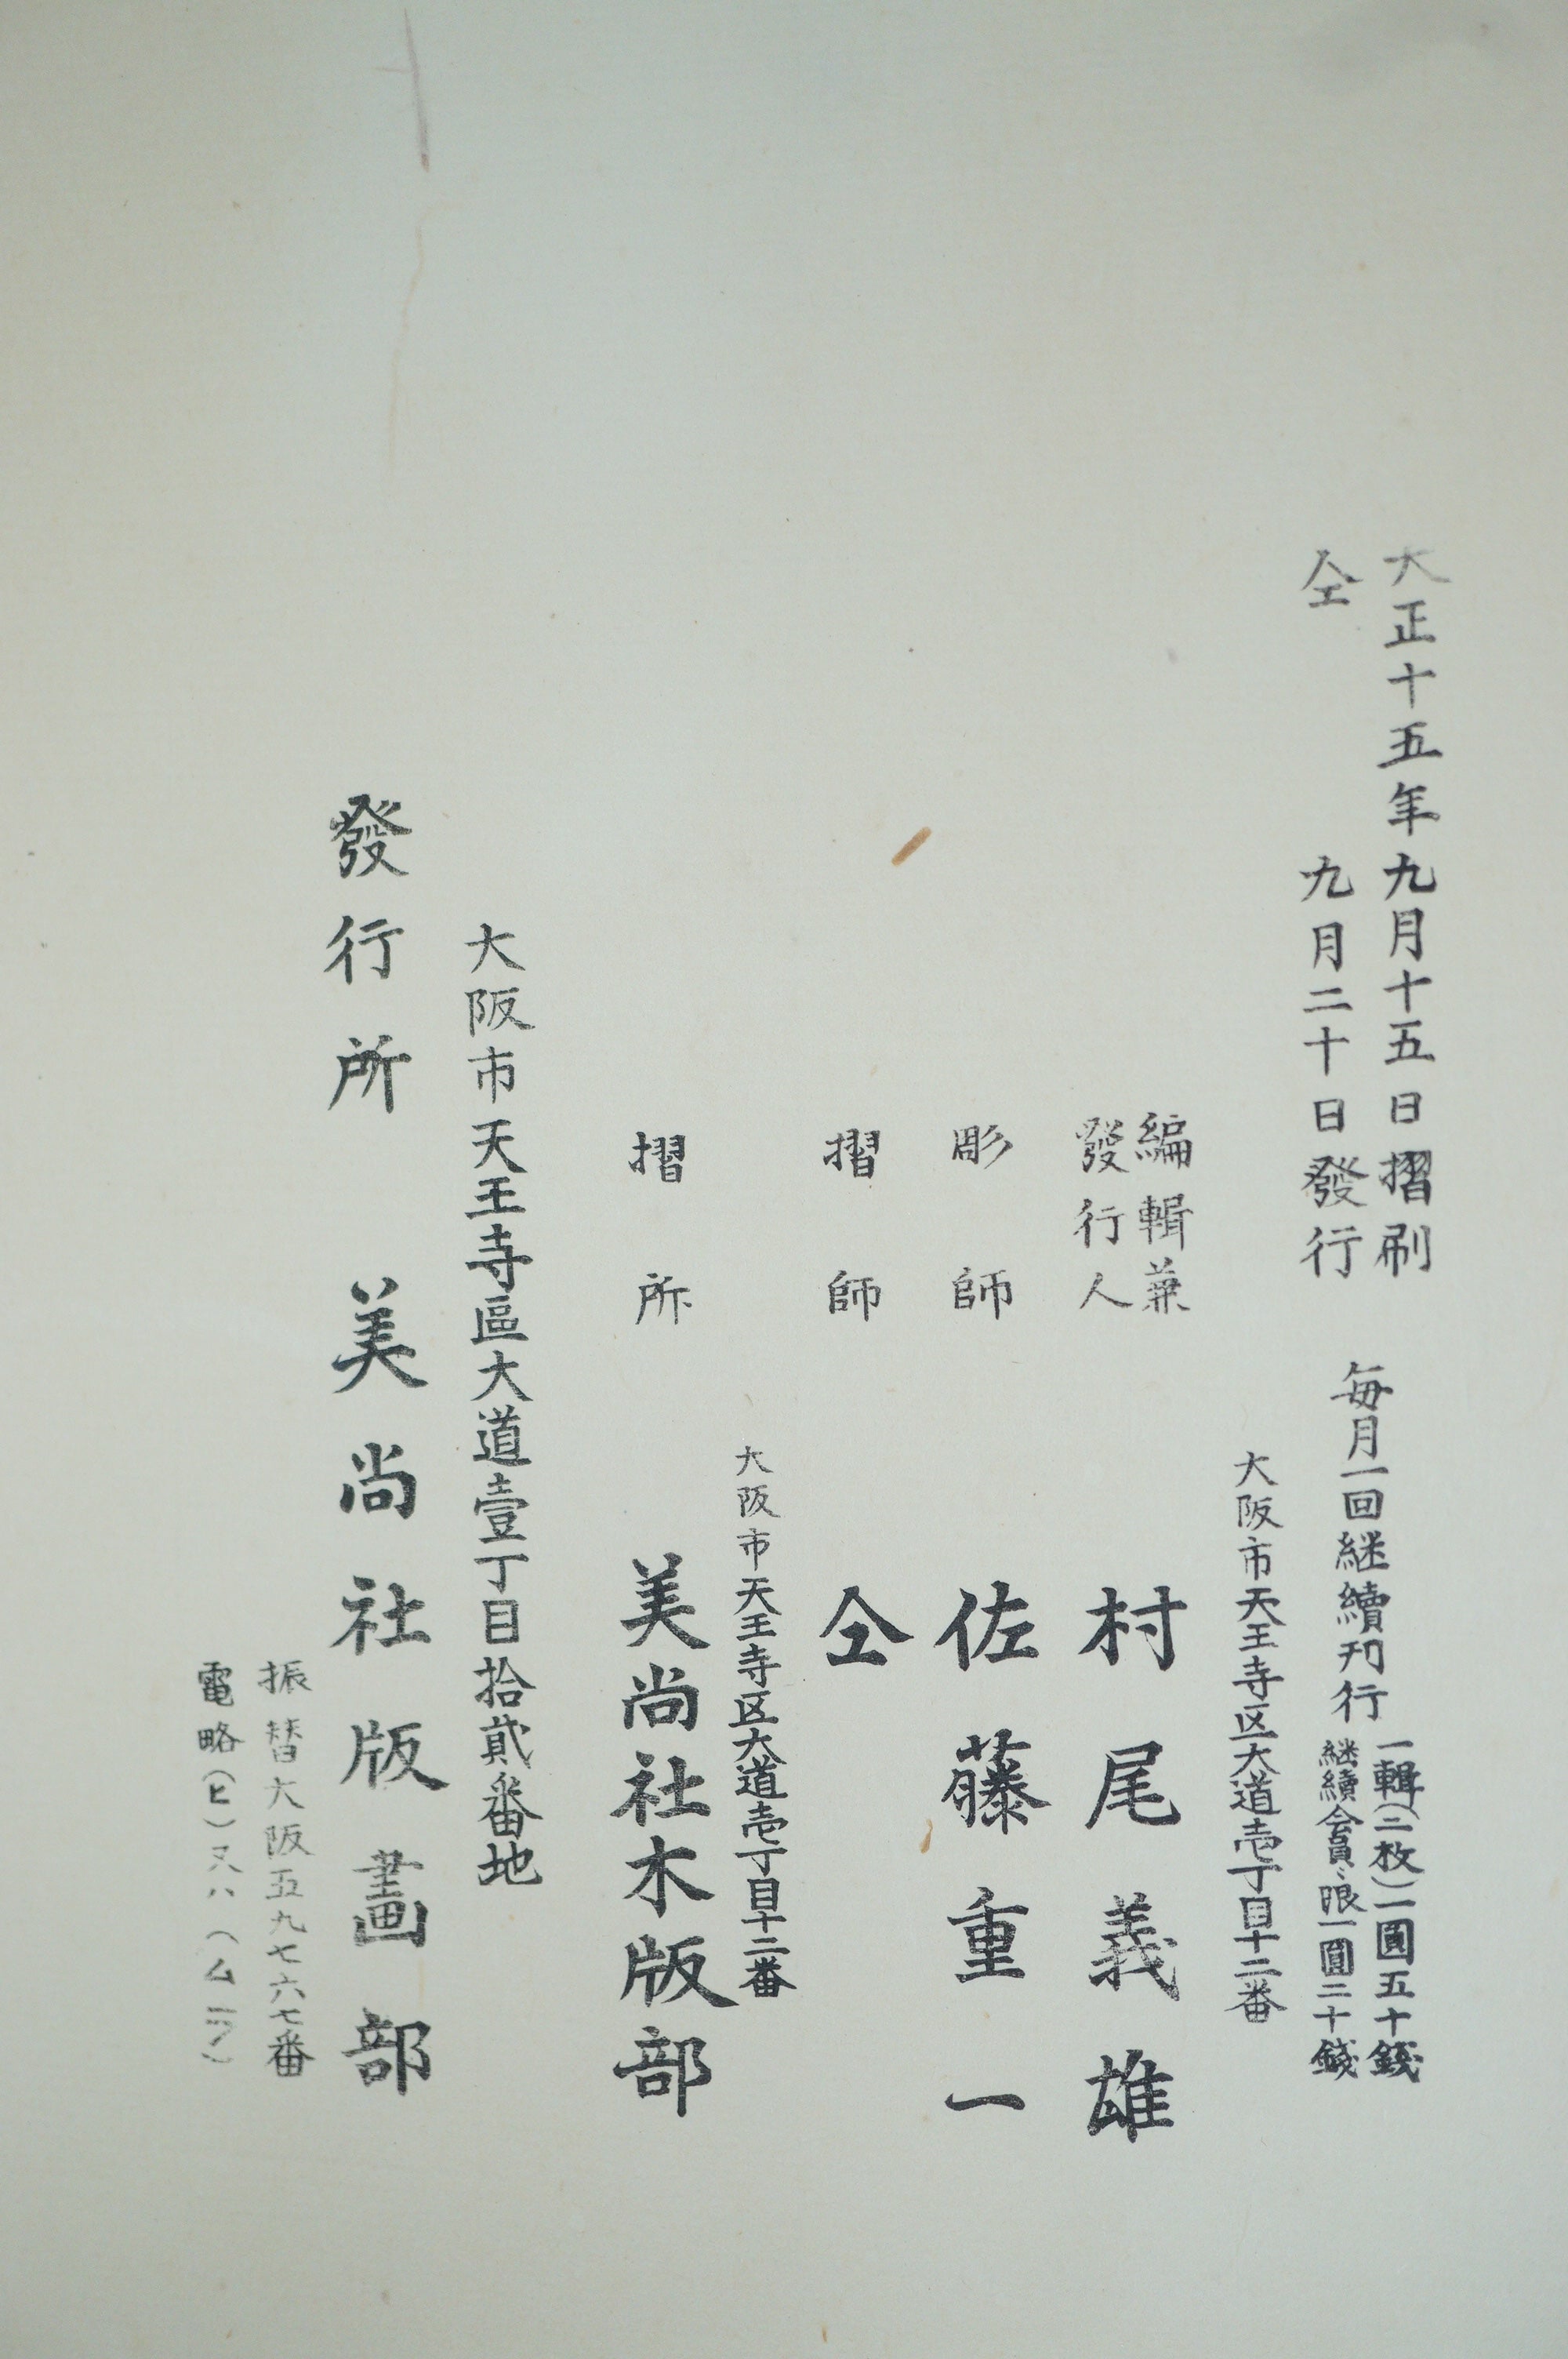 大正十五年九月十五日摺刷
仝 九月二十日發行
毎月一回継續刊行
一輯(二枚)一圓五十錢
継續會員ニ限一圓二十錢
大阪市天王寺区大道壱丁目十二番
編輯兼
發行人
村尾義雄
彫師 佐藤重一
摺師 仝
大阪市天王寺区大道壱丁目十二番
摺所 美尚社木版部
大阪市天王寺區大道壹丁目拾貳番地
發行所 美尚社版畫部
振替大阪五九七六七番
電略(ヒ)又ハ